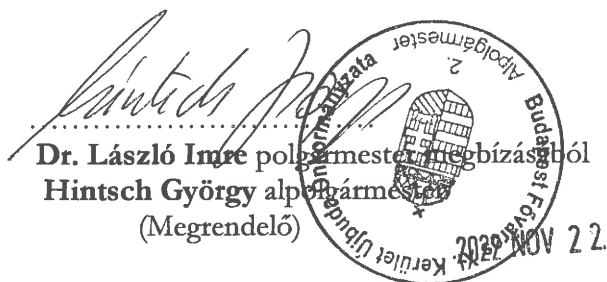 Dr. László Imre polgármester megbízásából
Hintsch György alpolgármester
(Megrendelő)
Budapest Főváros XI. Kerület Újbuda Önkormányzata
Alpolgármester
2.
2022 NOV 22.